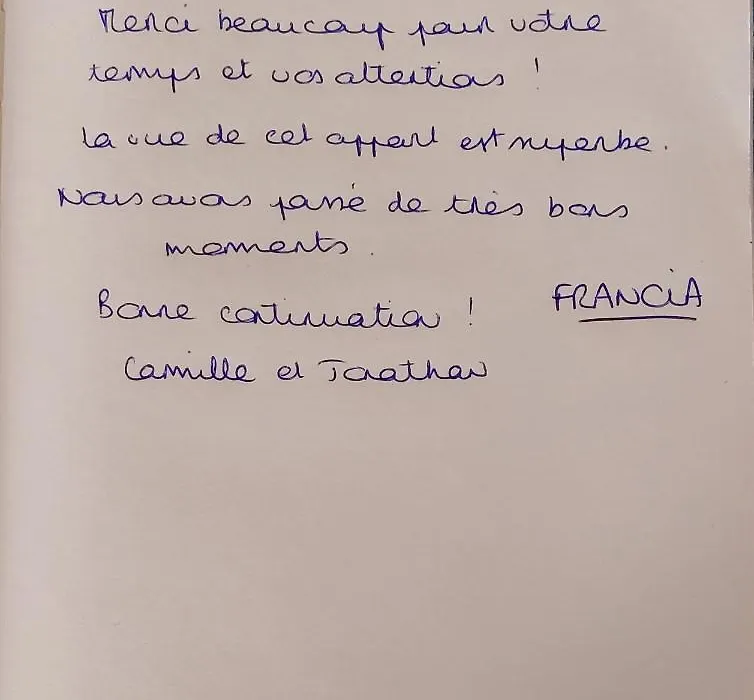 Merci beaucoup pour votre
temps et vos attentions !
La vue de cet appart est superbe.
Nous avons passé de très bons
moments.
Bonne continuation !
FRANCIA
Camille et Jonathan